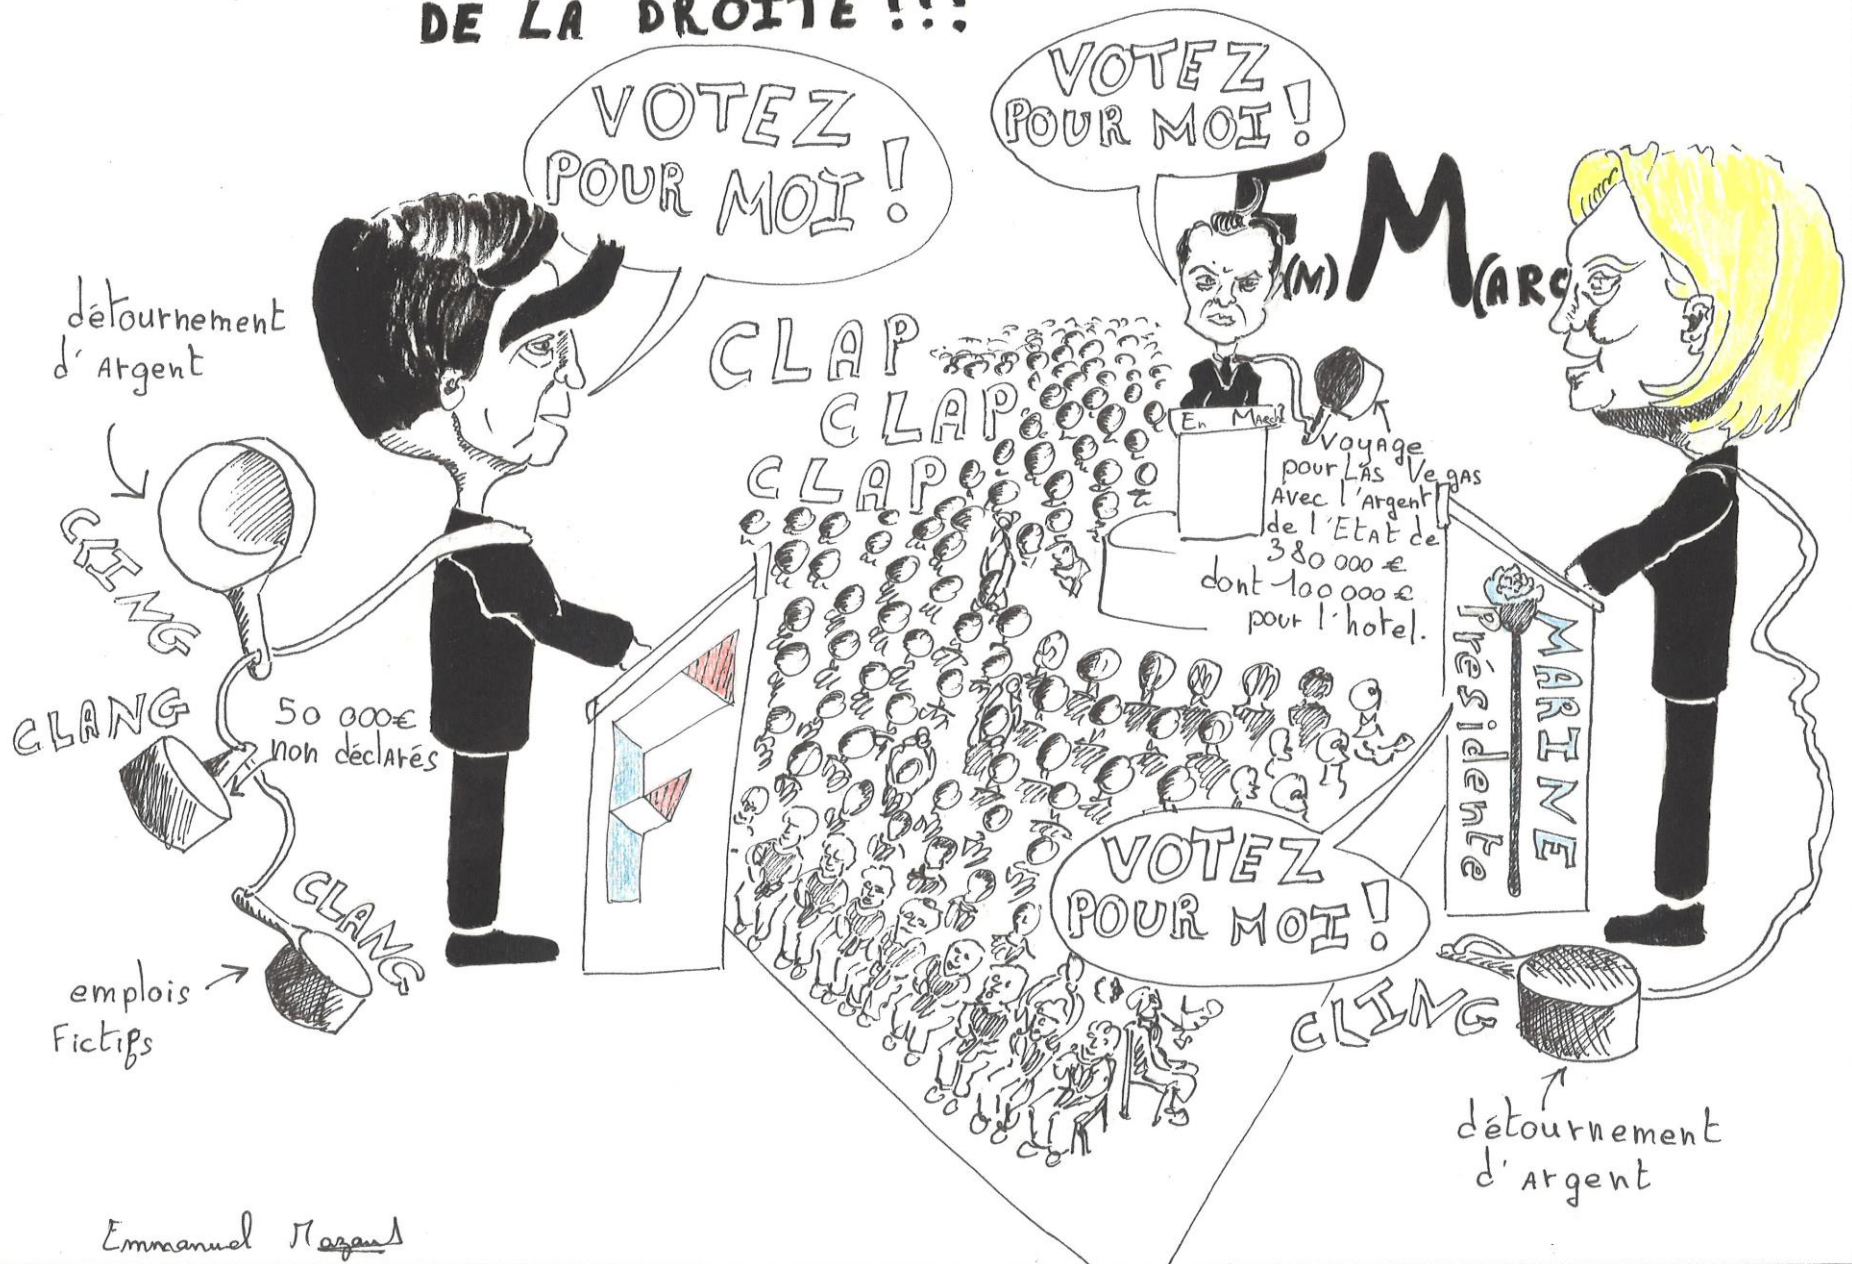 DE LA DROITE !!!
VOTEZ
POUR MOI !
VOTEZ
POUR MOI !
E(M) M(ARC
détournement
d'Argent
CLAP
CLAP
CLAP
En Marche
Voyage
pour LAs VegAs
Avec l'Argent
de l'EtAt de
380 000 €
dont 100 000 €
pour l'hotel.
CLING
CLANG
50 000€
non déclArés
CLANG
emplois
Fictifs
F
MARINE
Présidente
VOTEZ
POUR MOI !
CLING
détournement
d'Argent
Emmanuel